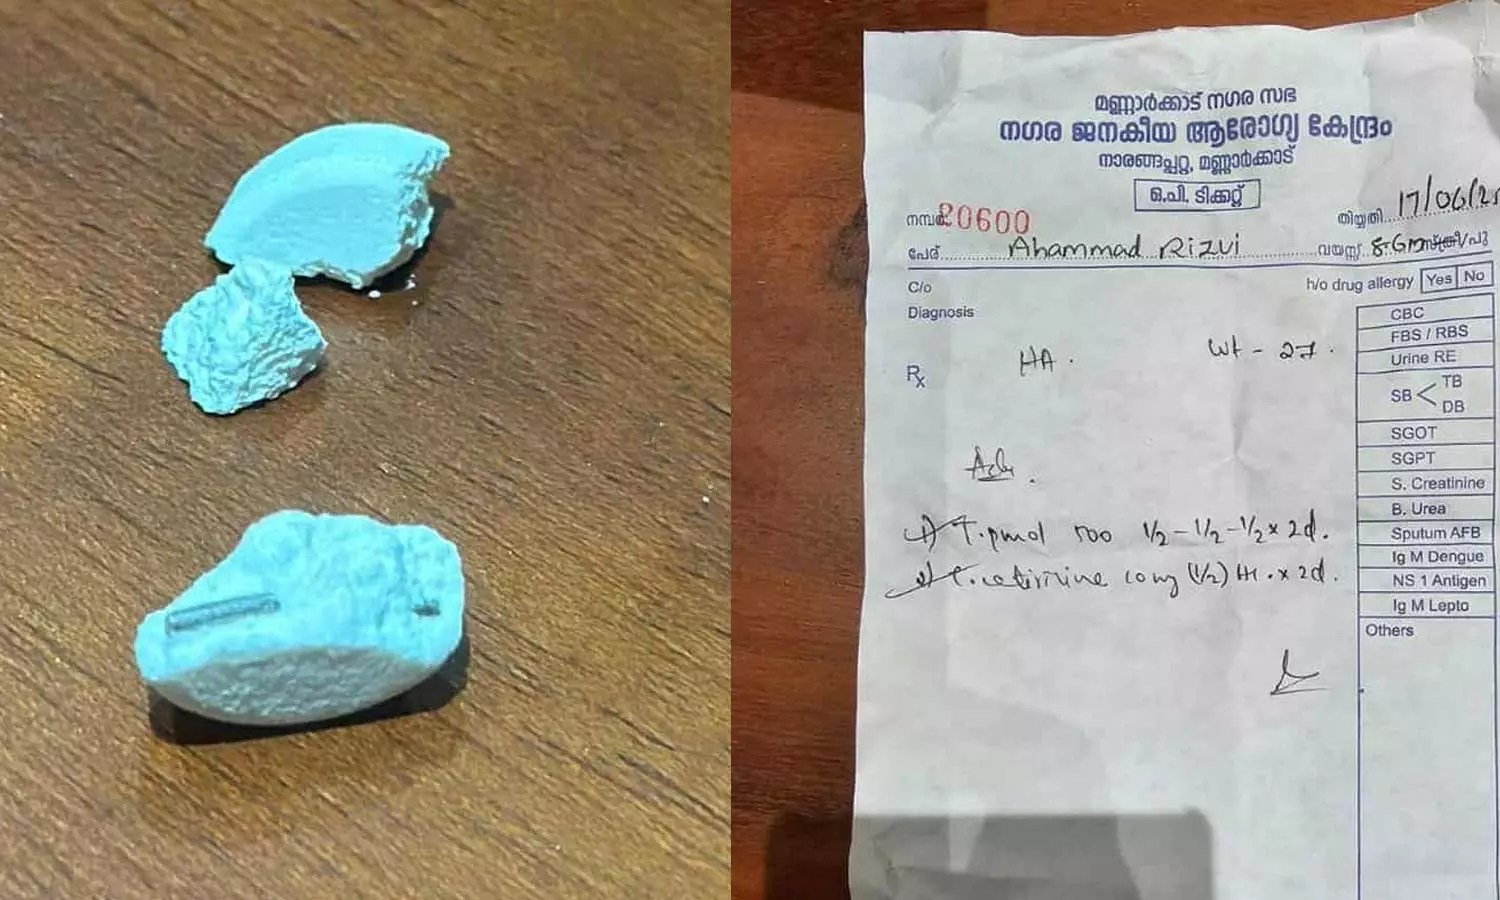 മണ്ണാർക്കാട് നഗര സഭ
നഗര ജനകീയ ആരോഗ്യ കേന്ദ്രം
നാരങ്ങപ്പറ്റ, മണ്ണാർക്കാട്
ഒ.പി. ടിക്കറ്റ്
നമ്പർ 20600 തിയ്യതി 17/06/25
പേര് Ahammad Rizvi വയസ്സ് സ്ത്രീ/പു
C/o h/o drug allergy Yes No
Diagnosis
CBC
FBS / RBS
HA. Wt - 27.
Urine RE
Rx
SB < TB
DB
SGOT
SGPT
Adv.
S. Creatinine
B. Urea
1) T. pmol 500 1/2-1/2-1/2 x 2d.
Sputum AFB
Ig M Dengue
2) T. cetirizine 10mg (1/2) HS. x 2d.
NS 1 Antigen
Ig M Lepto
Others